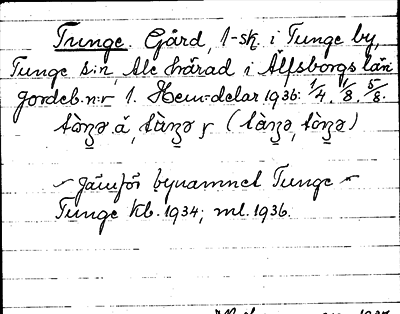 Tunge. Gård, 1-sk. i Tunge by,
Tunge s:n, Ale härad i Älfsborgs län
Jordeb.n:r 1. Hem:delar 1936: 1/4, 1/8, 5/8.
~ Jämför bynamnet Tunge ~
Tunge kb. 1934; ml. 1936.